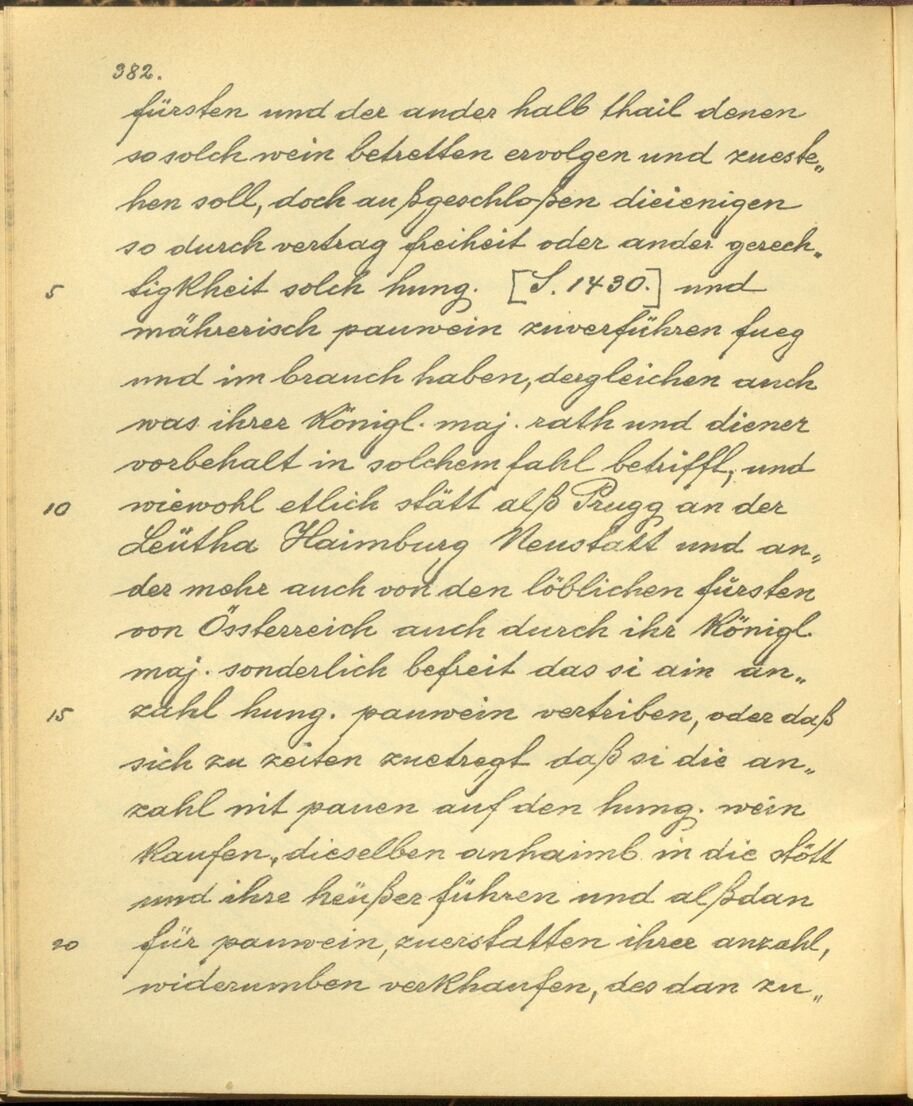 382.
fürsten und der ander halb thail denen
so solch wein betretten ervolgen und zueste„
hen soll, doch außgeschloßen dieienigen
so durch vertrag freiheit oder ander gerech„
5 tigkheit solch hung. [S. 1430.] und
mährerisch pauwein zuverführen fueg
und im brauch haben, dergleichen auch
was ihrer Königl. maj. rath und diener
vorbehalt in solchem fahl betrifft, und
10 wiewohl etlich stätt alß Prugg an der
Leütha Haimburg Neustatt und an„
der mehr auch von den löblichen fürsten
von Össterreich auch durch ihr Königl.
maj. sonderlich befreit das si ain an„
15 zahl hung. pauwein vertriben, oder daß
sich zu zeiten zuetregt daß si die an„
zahl nit pauen auf den hung. wein
kaufen, dieselben anhaimb in die stött
und ihre heüßer führen und alßdan
20 für pauwein, zuerstatten ihrer anzahl,
widerumben verkhaufen, des dan zu„